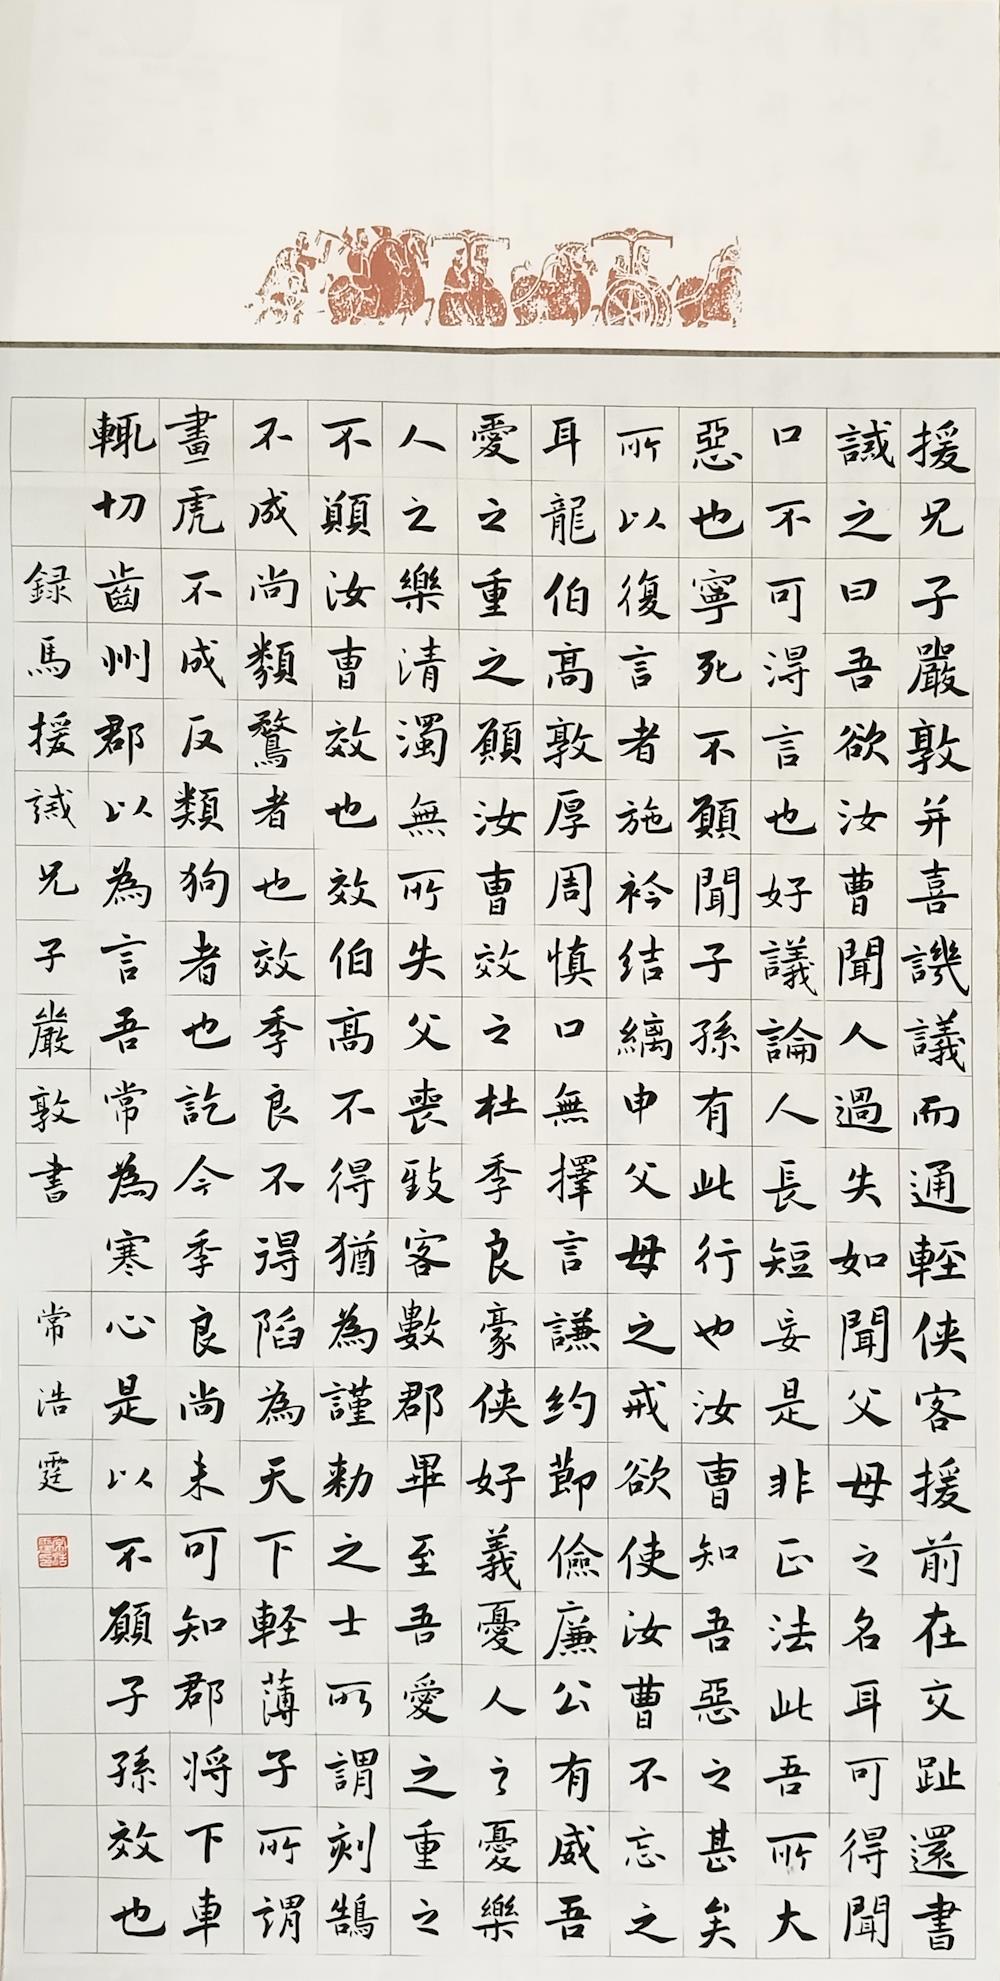 援兄子嚴敦并喜譏議而通輕俠客援前在交趾還書
誡之曰吾欲汝曹聞人過失如聞父母之名耳可得聞
口不可得言也好議論人長短妄是非正法此吾所大
惡也寧死不願聞子孫有此行也汝曹知吾惡之甚矣
所以復言者施衿結縭申父母之戒欲使汝曹不忘之
耳龍伯高敦厚周慎口無擇言謙約節儉廉公有威吾
愛之重之願汝曹效之杜季良豪俠好義憂人之憂樂
人之樂清濁無所失父喪致客數郡畢至吾愛之重之
不願汝曹效也效伯高不得猶為謹勅之士所謂刻鵠
不成尚類鶩者也效季良不得陷為天下輕薄子所謂
畫虎不成反類狗者也訖今季良尚未可知郡將下車
輒切齒州郡以為言吾常為寒心是以不願子孫效也
録馬援誡兄子嚴敦書 常浩霆